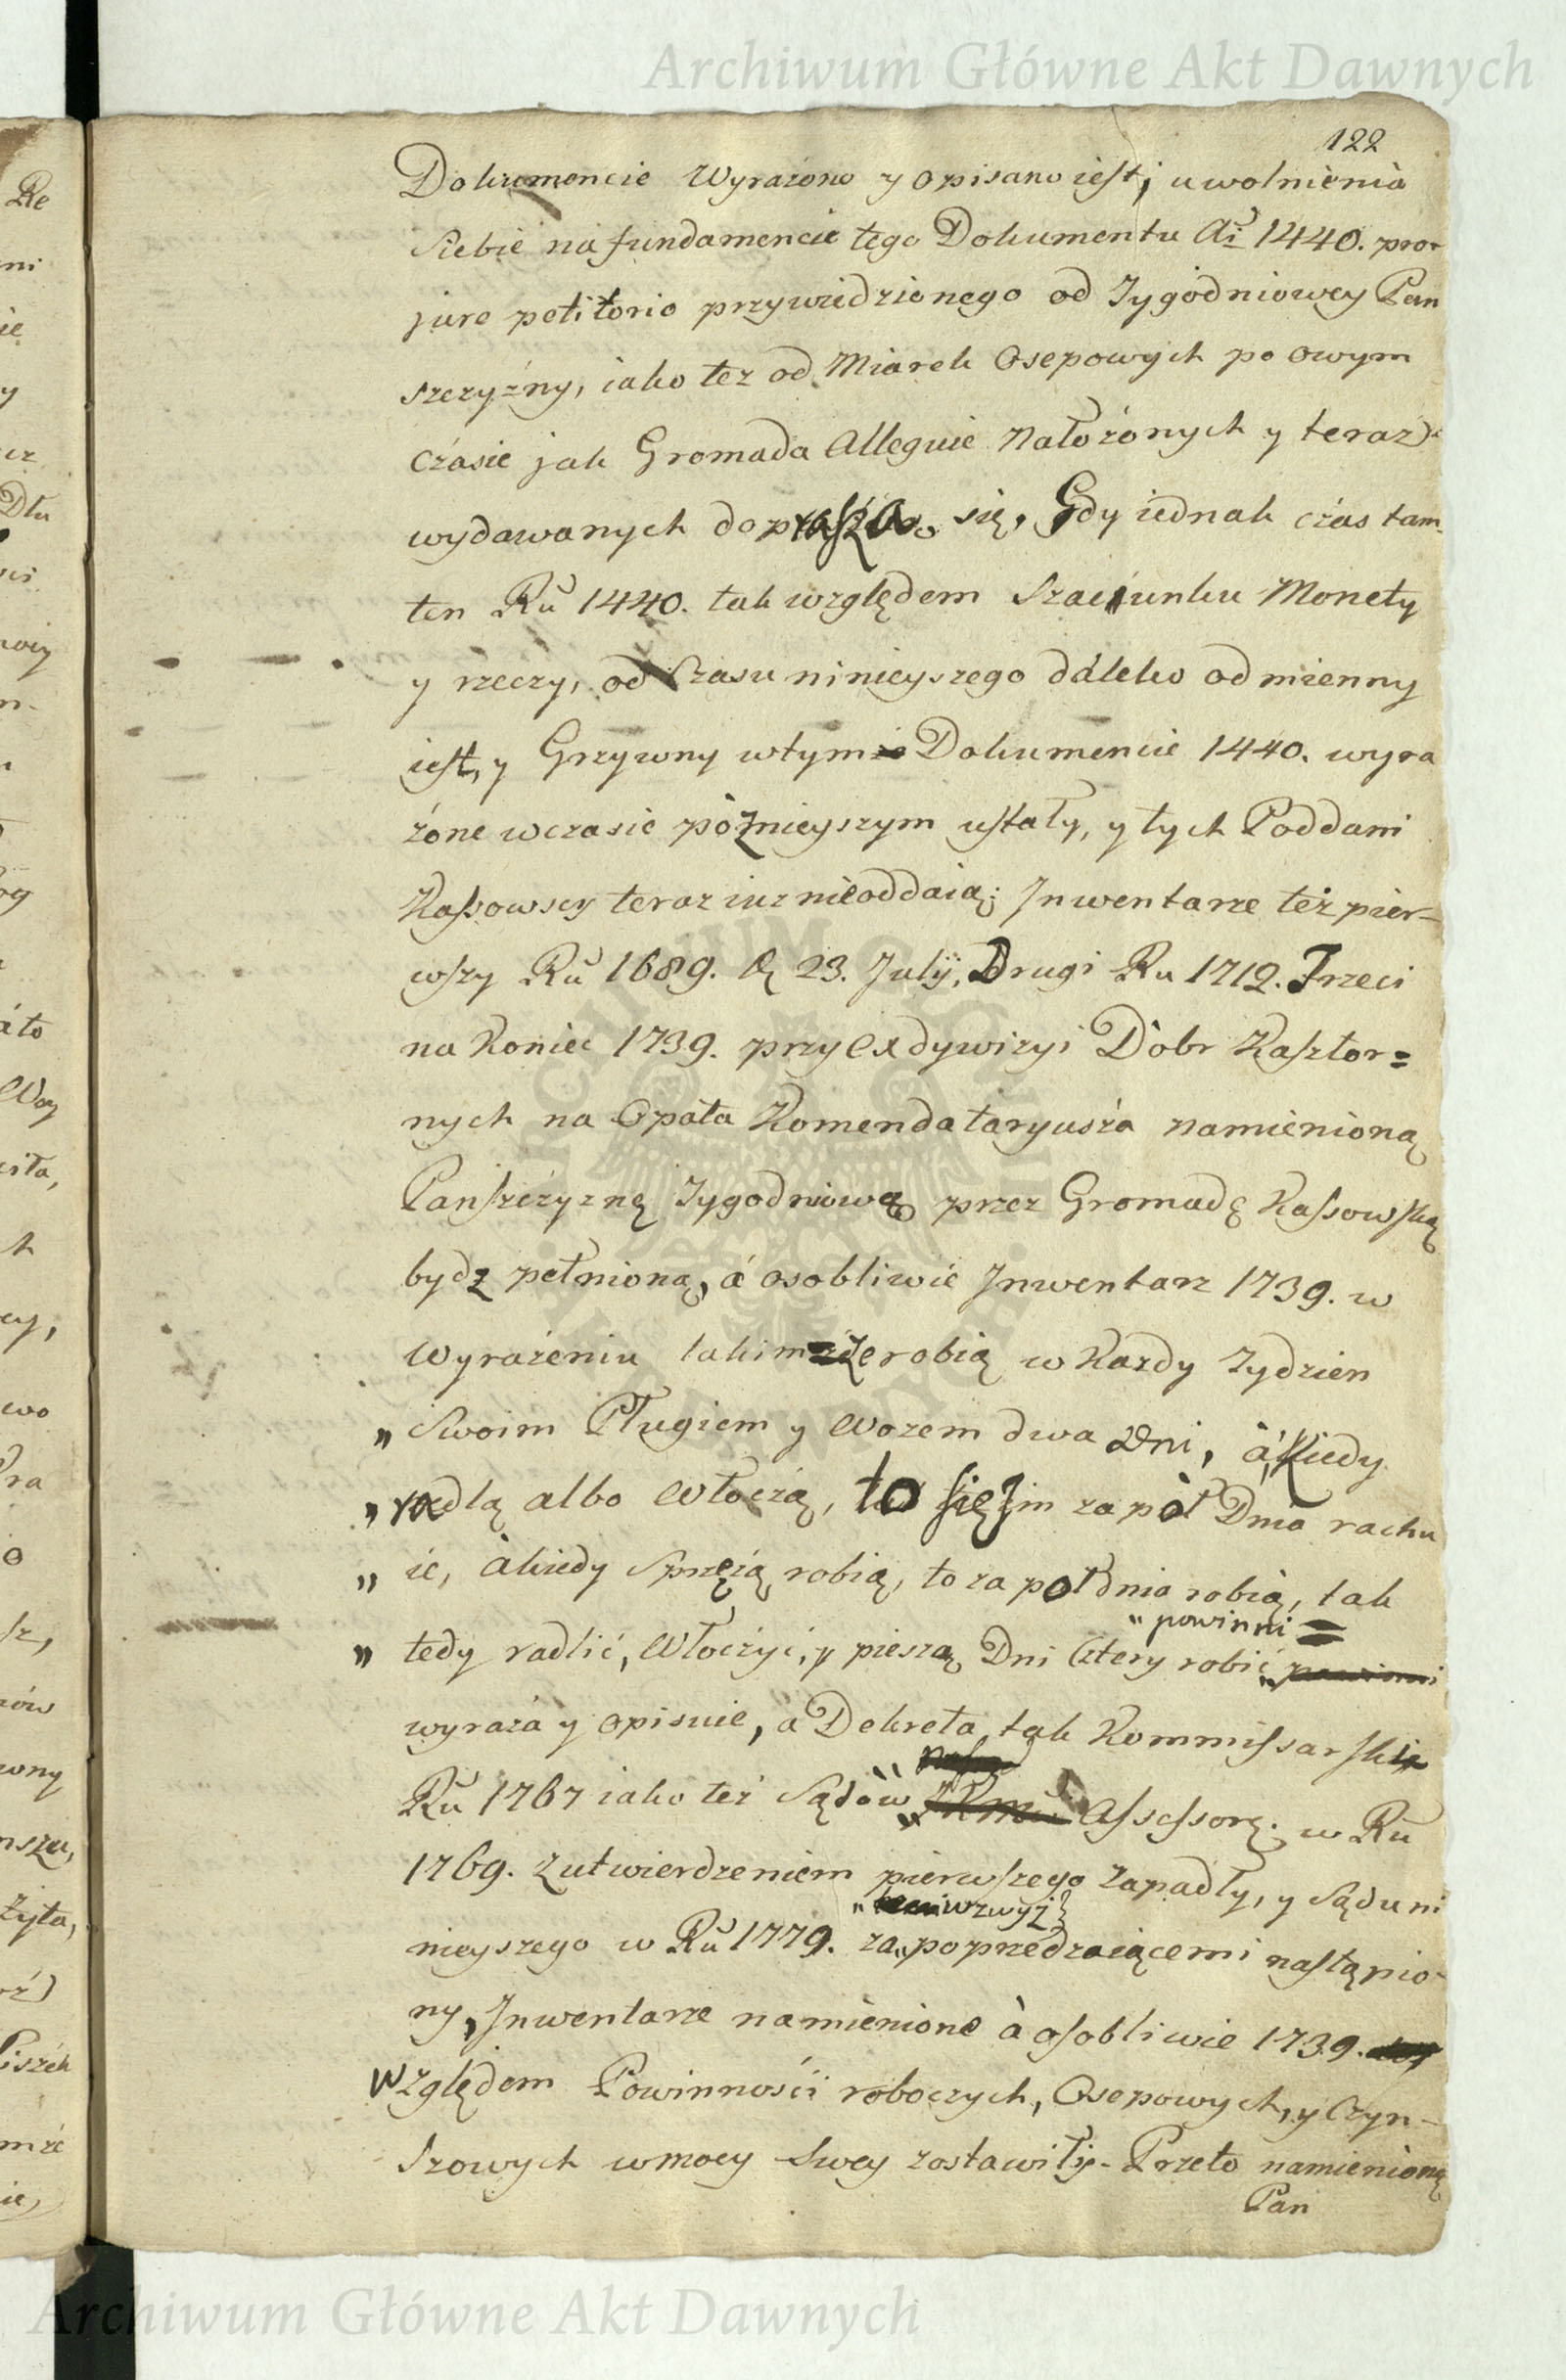 Archiwum Główne Akt Dawnych
122
Dokumencie Wyrażono y opisano iest; uwolnienia
siebie na fundamencie tego Dokumentu Ai 1440. pro
jure petitorio przywiedzionego od Tygodniowey Pan
szczyzny, iako też od Miarek Osepowych po owym
czasie jak Gromada Alleguie Nałożonych y teraz
wydawanych doprasza się, Gdy iednak czas tam
ten Ru 1440. tak względem Szacunku Monety
y rzeczy, od Czasu ninieyszego daleko odmienny
iest, y Grzywny wtym Dokumencie 1440. wyra
żone wczasie pòżnieyszym ustały, y tych Poddani
Kassowscy teraz iuż nieoddaią; Inwentarze też pier-
wszy Ru 1689. 23. Julÿ, Drugi Ru 1712. Trzeci
na Koniec 1739. przy exdywizyi Dòbr Klasztor=
nych na Opata Komendataryusza namienioną
Panszczyznę Tygodniową przez Gromadę Kassowską
bydz pełnioną, á osobliwie Inwentarz 1739. w
Wyrażeniu takim że robią w Kazdy Tydzien
„ Swoim Pługiem y Wozem dwa Dni, à Kiedy
„ radlą albo Włoczą, to się im za pòł Dnia rachu
„ ie, à kiedy Sprzężą robią, to za poł dnia robią, tak
„ powinni =
„ tedy radlić, Włoczyć, y pieszą Dni Cztery robić „ powinni
wyraża y opisuie, a Dekreta, tak Kommissarski
Ru 1767 iako też Sądòw Assessorę. w Ru
1769. z utwierdzeniem pierwszego zapadły, y Sądu ni
„ wzwyż
nieyszego w Ru 1779. za „ poprzedzaiącemi nastąpio-
ny, Inwentarze namienione à osobliwie 1739.
Względem Powinności roboczych, Osepowych, y Czyn-
szowych wmocy swey zostawiły. Przeto namienioną
Pan
Re
ni
ie
y
Dlu
n-
áto
Woy
h
ey,
wo
Pra
o
ròw
wony
nszu,
żyta,
Archiwum Główne Akt Dawnych